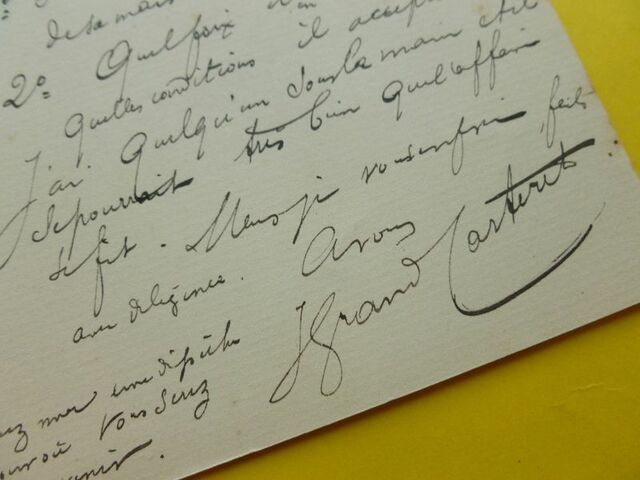 de la mais
2° Quel prix
quelles conditions il accept
J'ai quelqu'un sous la main et il
se pourrait très bien que l'affaire
se fit. Mais je vous en prie, fait
avec diligence. A vous
J Grand Carteret
une dépêche
où vous serez